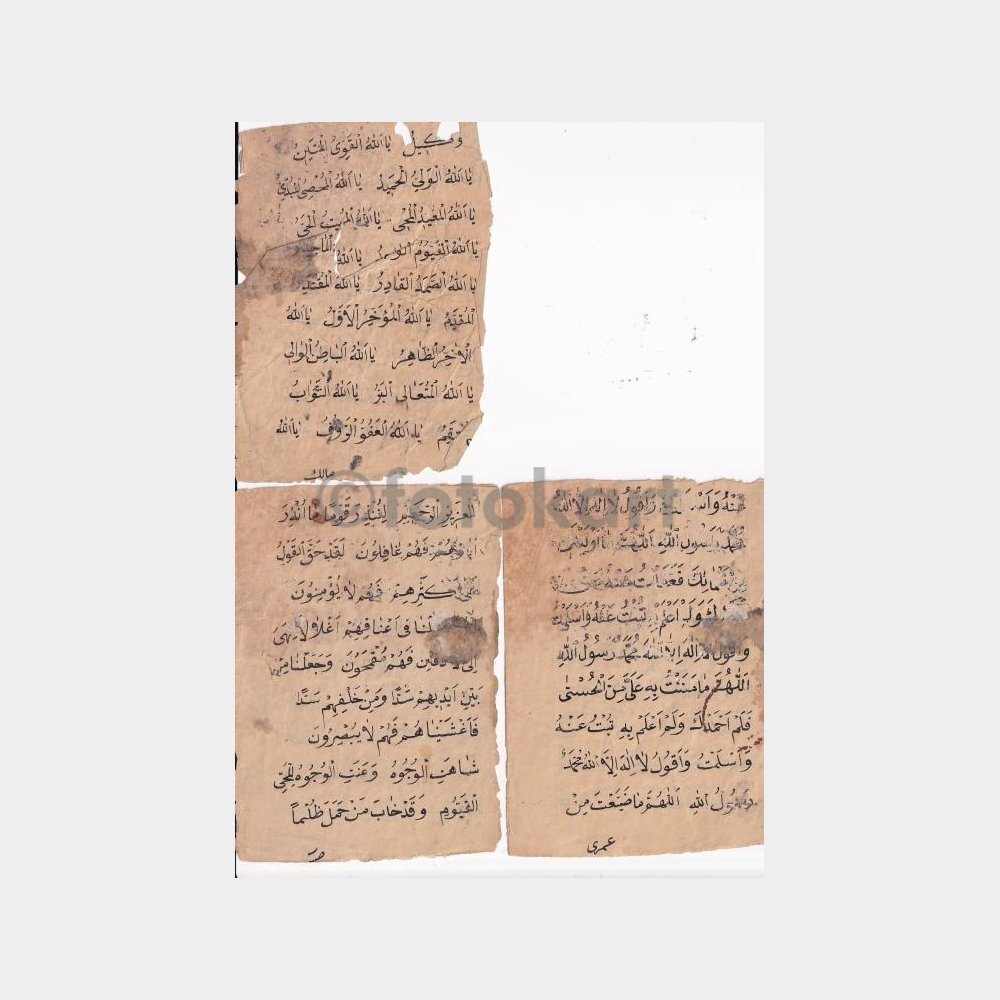 وكيل يا الله القوي المتين
يا الله الولي الحميد يا الله المحصي المبدئ
يا الله المعيد المحيي يا الله المميت الحي
يا الله القيوم يا الله الماجد
يا الله الصمد القادر يا الله المقتدر
المقدم يا الله المؤخر الاول يا الله
الاخر الظاهر يا الله الباطن الوالي
يا الله المتعالي البر يا الله التواب
يا الله العفو الرؤوف يا الله
مالك
©fotokart
العزيز الرحيم لتنذر قوما ما انذر
اباؤهم فهم غافلون لقد حق القول
على اكثرهم فهم لا يؤمنون
جعلنا في اعناقهم اغلالا فهي
الى الاذقان فهم مقمحون وجعلنا من
بين ايديهم سدا ومن خلفهم سدا
فاغشيناهم فهم لا يبصرون
شاهت الوجوه وعنت الوجوه للحي
القيوم وقد خاب من حمل ظلما
عنه واقول لا اله الا الله
محمد رسول الله
ولم اعلم تبت عنه واسلمت
واقول لا اله الا الله محمد رسول الله
اللهم ما مننت به علي من الحسنى
فلم احمدك ولم اعلم به تبت عنه
واسلمت واقول لا اله الا الله محمد
رسول الله اللهم ما صنعت من
عمري